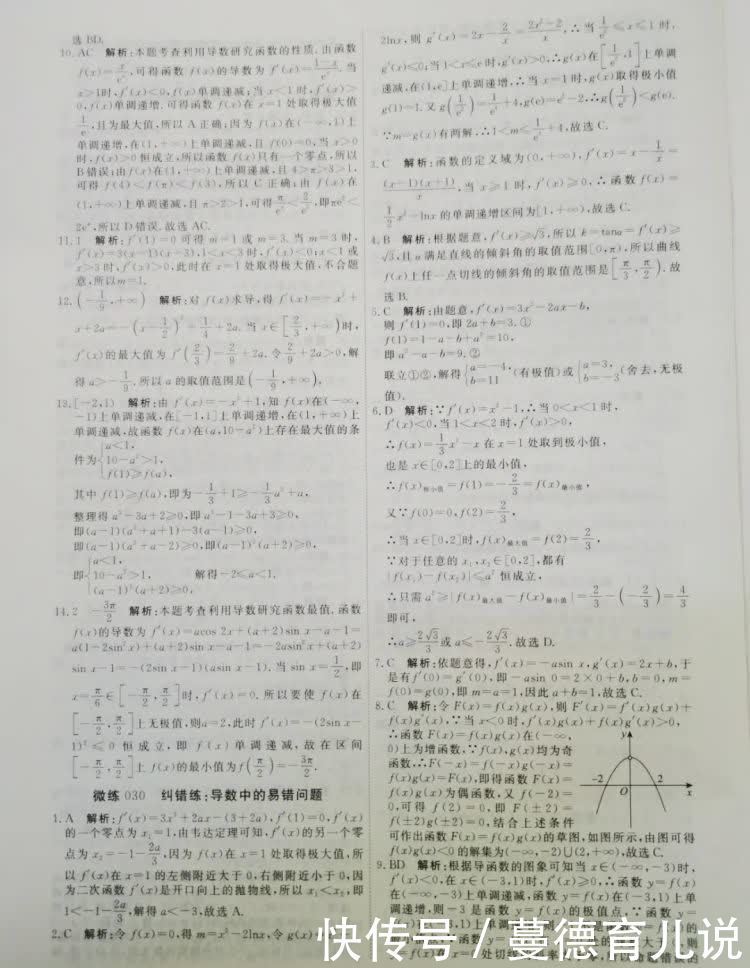 选BD.
10.AC 解析:本题考查利用导数研究函数的性质.由函数
f(x)=x/e^x,可得函数f(x)的导数为f′(x)=(1-x)/e^x.当
x>1时,f′(x)<0,f(x)单调递减;当x<1时,f′(x)>
0,f(x)单调递增.可得函数f(x)在x=1处取得极大值
1/e,且为最大值,所以A正确;因为f(x)在(-∞,1)上
单调递增,在(1,+∞)上单调递减,且f(0)=0,当x>0
时,f(x)>0恒成立,所以函数f(x)只有一个零点,所以
B错误;由f(x)在(1,+∞)上单调递减,且4>π>3>1,
可得f(4)<f(π)<f(3),所以C正确;由f(x)在
(1,+∞)上单调递减,且π>2>1,可得π/e^π<2/e²,即πe²<
2e^π,所以D错误.故选AC.
11.1 解析:f′(1)=0可得m=1或m=3.当m=3时,
f′(x)=3(x-1)(x-3),1<x<3时,f′(x)<0;x<1或
x>3时,f′(x)>0,此时在x=1处取得极大值,不合题
意,所以m=1.
12.(-1/9,+∞) 解析:对f(x)求导,得f′(x)=-x²+
x+2a=-(x-1/2)²+1/4+2a.当x∈[2/3,+∞)时,
f′(x)的最大值为f′(2/3)=2/9+2a.令2/9+2a>0,解
得a>-1/9.所以a的取值范围是(-1/9,+∞).
13.[-2,1) 解析:由f′(x)=-x²+1,知f(x)在(-∞,
-1)上单调递减,在[-1,1]上单调递增,在(1,+∞)上
单调递减,故函数f(x)在(a,10-a²)上存在最大值的条
件为{a<1,
10-a²>1,
f(1)≥f(a),
其中f(1)≥f(a),即为-1/3+1≥-1/3a³+a,
整理得a³-3a+2≥0,即a³-1-3a+3≥0,
即(a-1)(a²+a+1)-3(a-1)≥0,
即(a-1)(a²+a-2)≥0,即(a-1)²(a+2)≥0,
即{a<1,
10-a²>1,
(a-1)²(a+2)≥0, 解得-2≤a<1.
14.2 -3π/2 解析:本题考查利用导数研究函数最值.函数
f(x)的导数为f′(x)=acos 2x+(a+2)sin x-a-1=
a(1-2sin²x)+(a+2)sin x-a-1=-2asin²x+(a+2)
sin x-1=-(2sin x-1)(asin x-1).当sin x=1/2,即
x=π/6∈[-π/2,π/2]时,f′(x)=0.所以要使f(x)在
[-π/2,π/2]上无极值,则a=2,此时f′(x)=-(2sin x-
1)²≤0恒成立,即f(x)单调递减,故在区间
[-π/2,π/2]上f(x)的最小值为f(π/2)=-3π/2.
微练030 纠错练:导数中的易错问题
1.A 解析:f′(x)=3x²+2ax-(3+2a),f′(1)=0,f′(x)
的一个零点为x₁=1,由韦达定理可知,f′(x)的另一个零
点为x₂=-1-2a/3,因为f(x)在x=1处取得极大值,所
以f′(x)在x=1的左侧附近大于0,右侧附近小于0,因
为二次函数f′(x)是开口向上的抛物线,所以x₁<x₂,即
1<-1-2a/3,解得a<-3,故选A.
2.C 解析:令f(x)=0,得m=x²-2lnx,令g(x)
2lnx,则g′(x)=2x-2/x=(2x²-2)/x,∴当1/e≤x≤1时,
g′(x)<0,当1<x≤e时,g′(x)>0,∴g(x)在[1/e,1]上单调
递减,在(1,e]上单调递增,∴当x=1时,g(x)取得极小值
g(1)=1.又g(1/e)=1/e²+4,g(e)=e²-2,∴g(1/e)<g(e).
∵m=g(x)有两解,∴1<m≤1/e²+4,故选C.
3.C 解析:函数的定义域为(0,+∞),f′(x)=x-1/x=
(x-1)(x+1)/x,当x≥1时,f′(x)≥0,∴函数f(x)=
1/2x²-lnx的单调递增区间为[1,+∞),故选C.
4.B 解析:根据题意,f′(x)≥√3,所以k=tanα=f′(x)≥
√3,且α满足直线的倾斜角的取值范围[0,π),所以曲线
f(x)上任一点切线的倾斜角的取值范围是[π/3,π/2).故
选B.
5.C 解析:由题意,f′(x)=3x²-2ax-b,
则f′(1)=0,即2a+b=3.①
f(1)=1-a-b+a²=10,
即a²-a-b=9.②
联立①②,解得{a=-4,b=11(有极值)或{a=3,b=-3(舍去,无极
值).
6.D 解析:∵f′(x)=x²-1,∴当0<x<1时,
f′(x)<0,当1<x<2时,f′(x)>0,
∴f(x)=1/3x³-x在x=1处取到极小值,
也是x∈[0,2]上的最小值,
∴f(x)极小值=f(1)=-2/3=f(x)最小值,
又∵f(0)=0,f(2)=2/3,
∴当x∈[0,2]时,f(x)最大值=f(2)=2/3,
∵对于任意的x₁,x₂∈[0,2],都有
|f(x₁)-f(x₂)|≤a²恒成立,
∴只需a²≥|f(x)最大值-f(x)最小值|=2/3-(-2/3)=4/3
即可,
∴a≥2√3/3或a≤-2√3/3.故选D.
7.C 解析:依题意得,f′(x)=-asin x,g′(x)=2x+b,于
是有f′(0)=g′(0),即-asin 0=2×0+b,b=0,m=
f(0)=g(0),即m=a=1,因此a+b=1,故选C.
8.C 解析:令F(x)=f(x)g(x),则F′(x)=f′(x)g(x)+
f(x)g′(x),∵当x<0时,f′(x)g(x)+f(x)g′(x)>0,
∴函数F(x)=f(x)g(x)在(-∞,
0)上为增函数,∵f(x),g(x)均为奇
函数,∴F(-x)=f(-x)g(-x)=
f(x)g(x)=F(x),即得函数F(x)=
f(x)g(x)为偶函数,又f(-2)=
0,可得f(2)=0,即F(±2)=
f(±2)g(±2)=0,结合上述条件
可作出函数F(x)=f(x)g(x)的草图,如图所示,由图可得
f(x)g(x)<0的解集为(-∞,-2)∪(2,+∞),故选C.
y
-2
O
2
x
9.BD 解析:根据导函数的图象可知当x∈(-∞,-3)时,
f′(x)<0,在x∈(-3,1)时,f′(x)≥0,∴函数y=f(x)
在(-∞,-3)上单调递减,函数y=f(x)在(-3,1)上单
调递增,则-3是函数y=f(x)的极值点,∵函数y=
快传号 / 蔓德育儿说